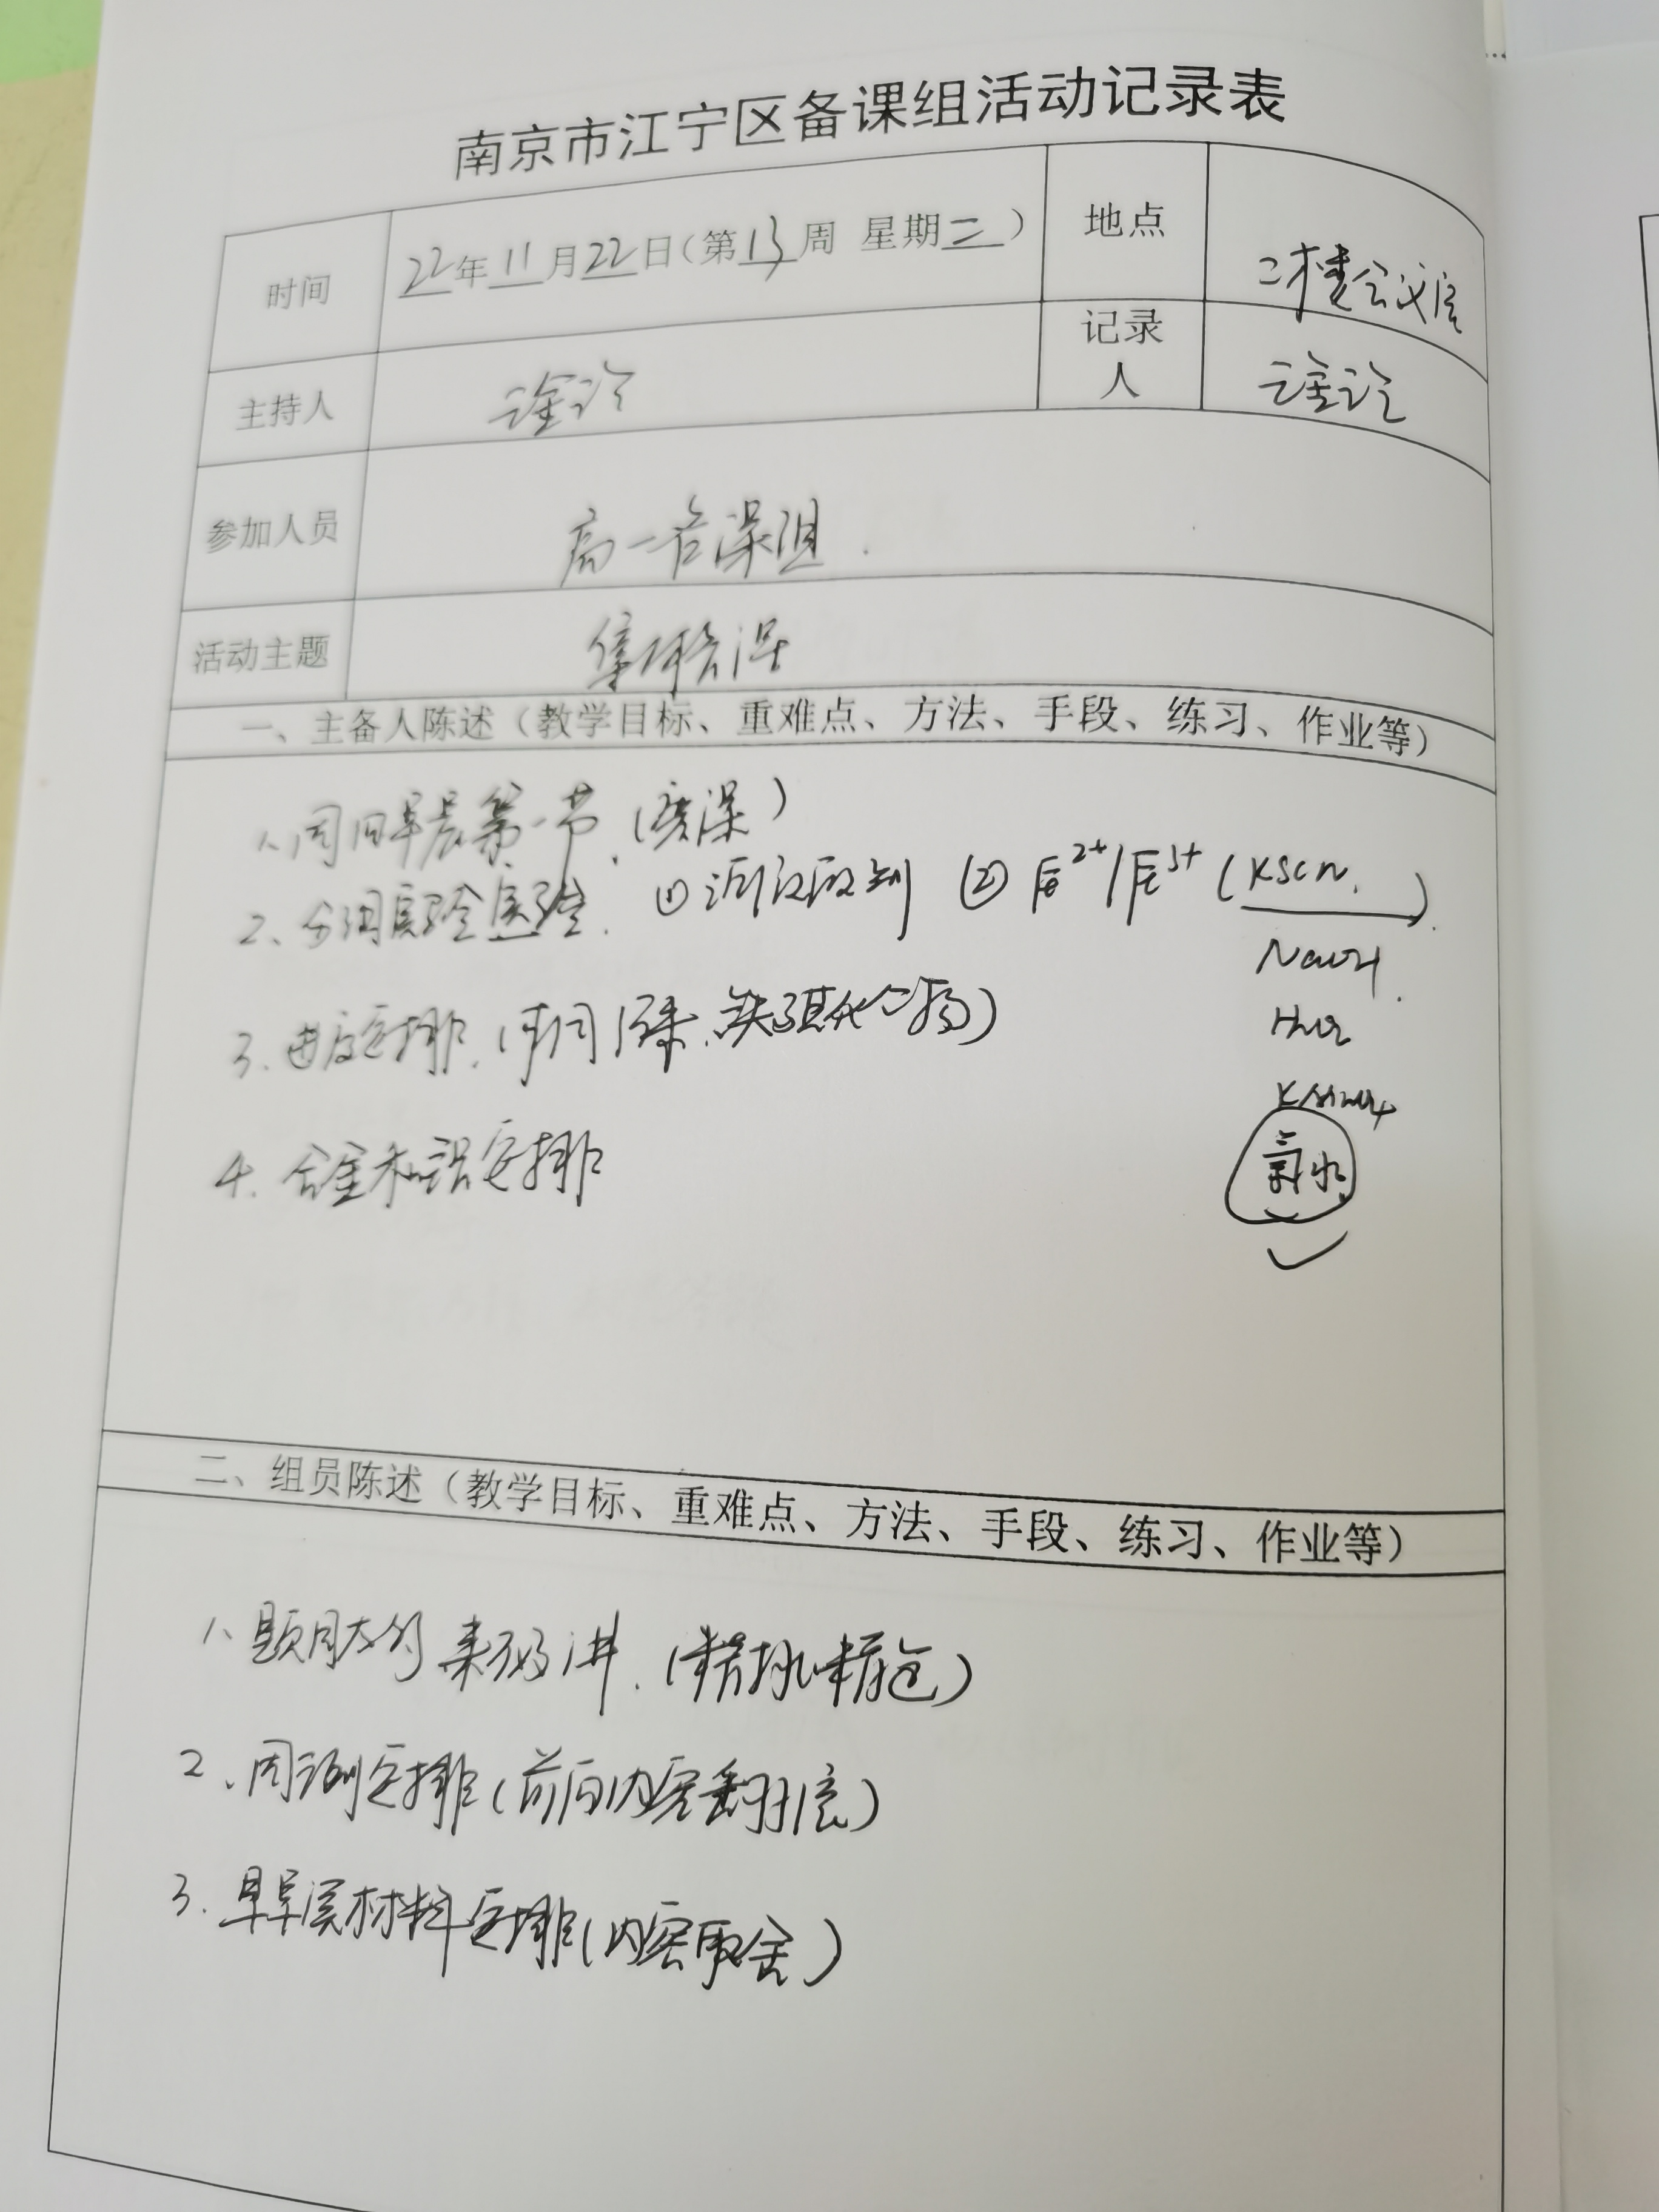 南京市江宁区备课组活动记录表
时间 22年11月22日(第13周 星期二) 地点 二楼会议室
主持人 记录人
参加人员 高一备课组.
活动主题 集体备课
一、主备人陈述（教学目标、重难点、方法、手段、练习、作业等）
1、周四早晨第一节.(磨课)
2、分组实验 . ① ② Fe2+/Fe3+ (KSCN. ).
NaOH.
KMnO4
氯水
3.进度安排.( 1课.铁及其化合物)
4.合金知识安排
二、组员陈述（教学目标、重难点、方法、手段、练习、作业等）
1、题目太多 来不及讲.(精挑 )
2、周测安排(前后内容 )
3.早读材料安排(内容取舍)